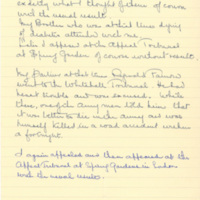 exactly what I thought of course
and the usual result.
My Brother who was at that time dying
of diabetes attended with me
Later I appeared at the Appeal Tribunal
at Spring Gardens of course without result.
My Partner at that time Reginald
went to the Whitehall Tribunal. He had
heart trouble but was excused. While
there, one of the Army men told him that
it was better to die in the army and was
himself killed in a road accident within
a fortnight.
I again appealed and then appeared at the
Appeal Tribunal at Spring Gardens in London
with the usual result.